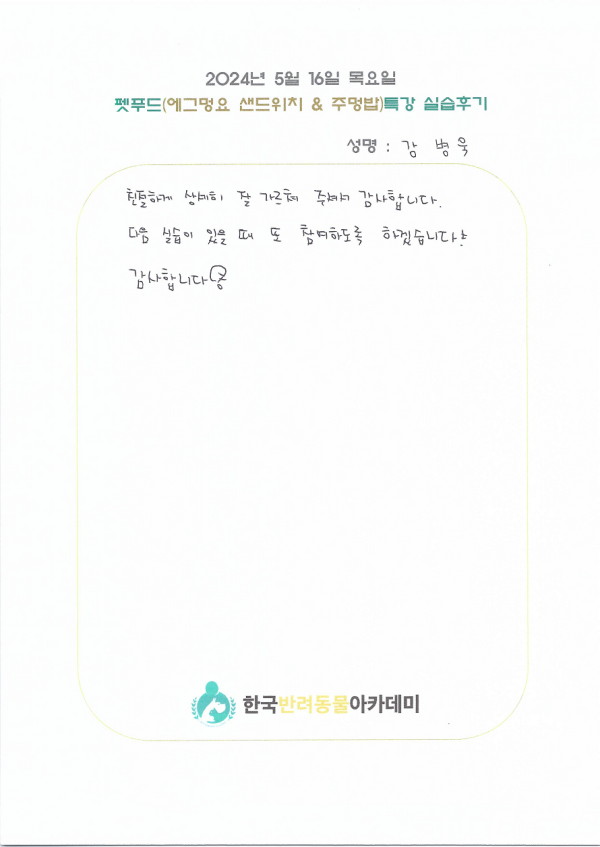 2024년 5월 16일 목요일
펫푸드(에그멍요 샌드위치 & 주멍밥)특강 실습후기
성명 : 감 병 욱
친절하게 상세히 잘 가르쳐 주셔서 감사합니다.
다음 실습이 있을 때 또 참여하도록 하겠습니다!
감사합니다
한국반려동물아카데미